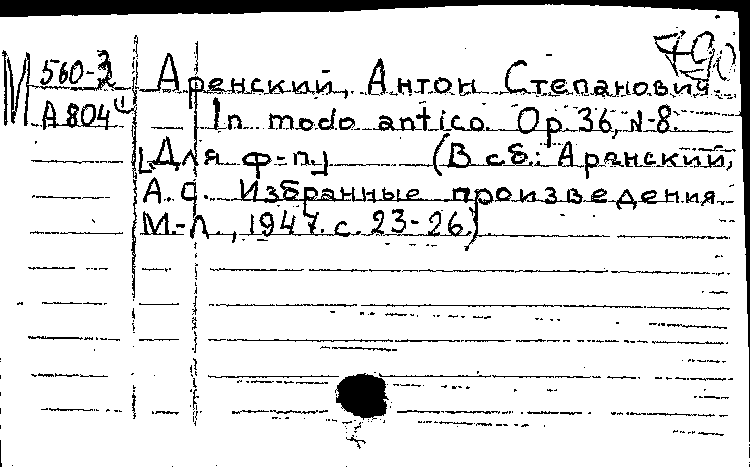 790
М 560-3 Аренский, Антон Степанович.
А 804 In modo antico. Op. 36, N-8.
[Для ф-п.] (В сб.: Аренский,
А. С. Избранные произведения.
М.-Л., 1947. с. 23-26.)